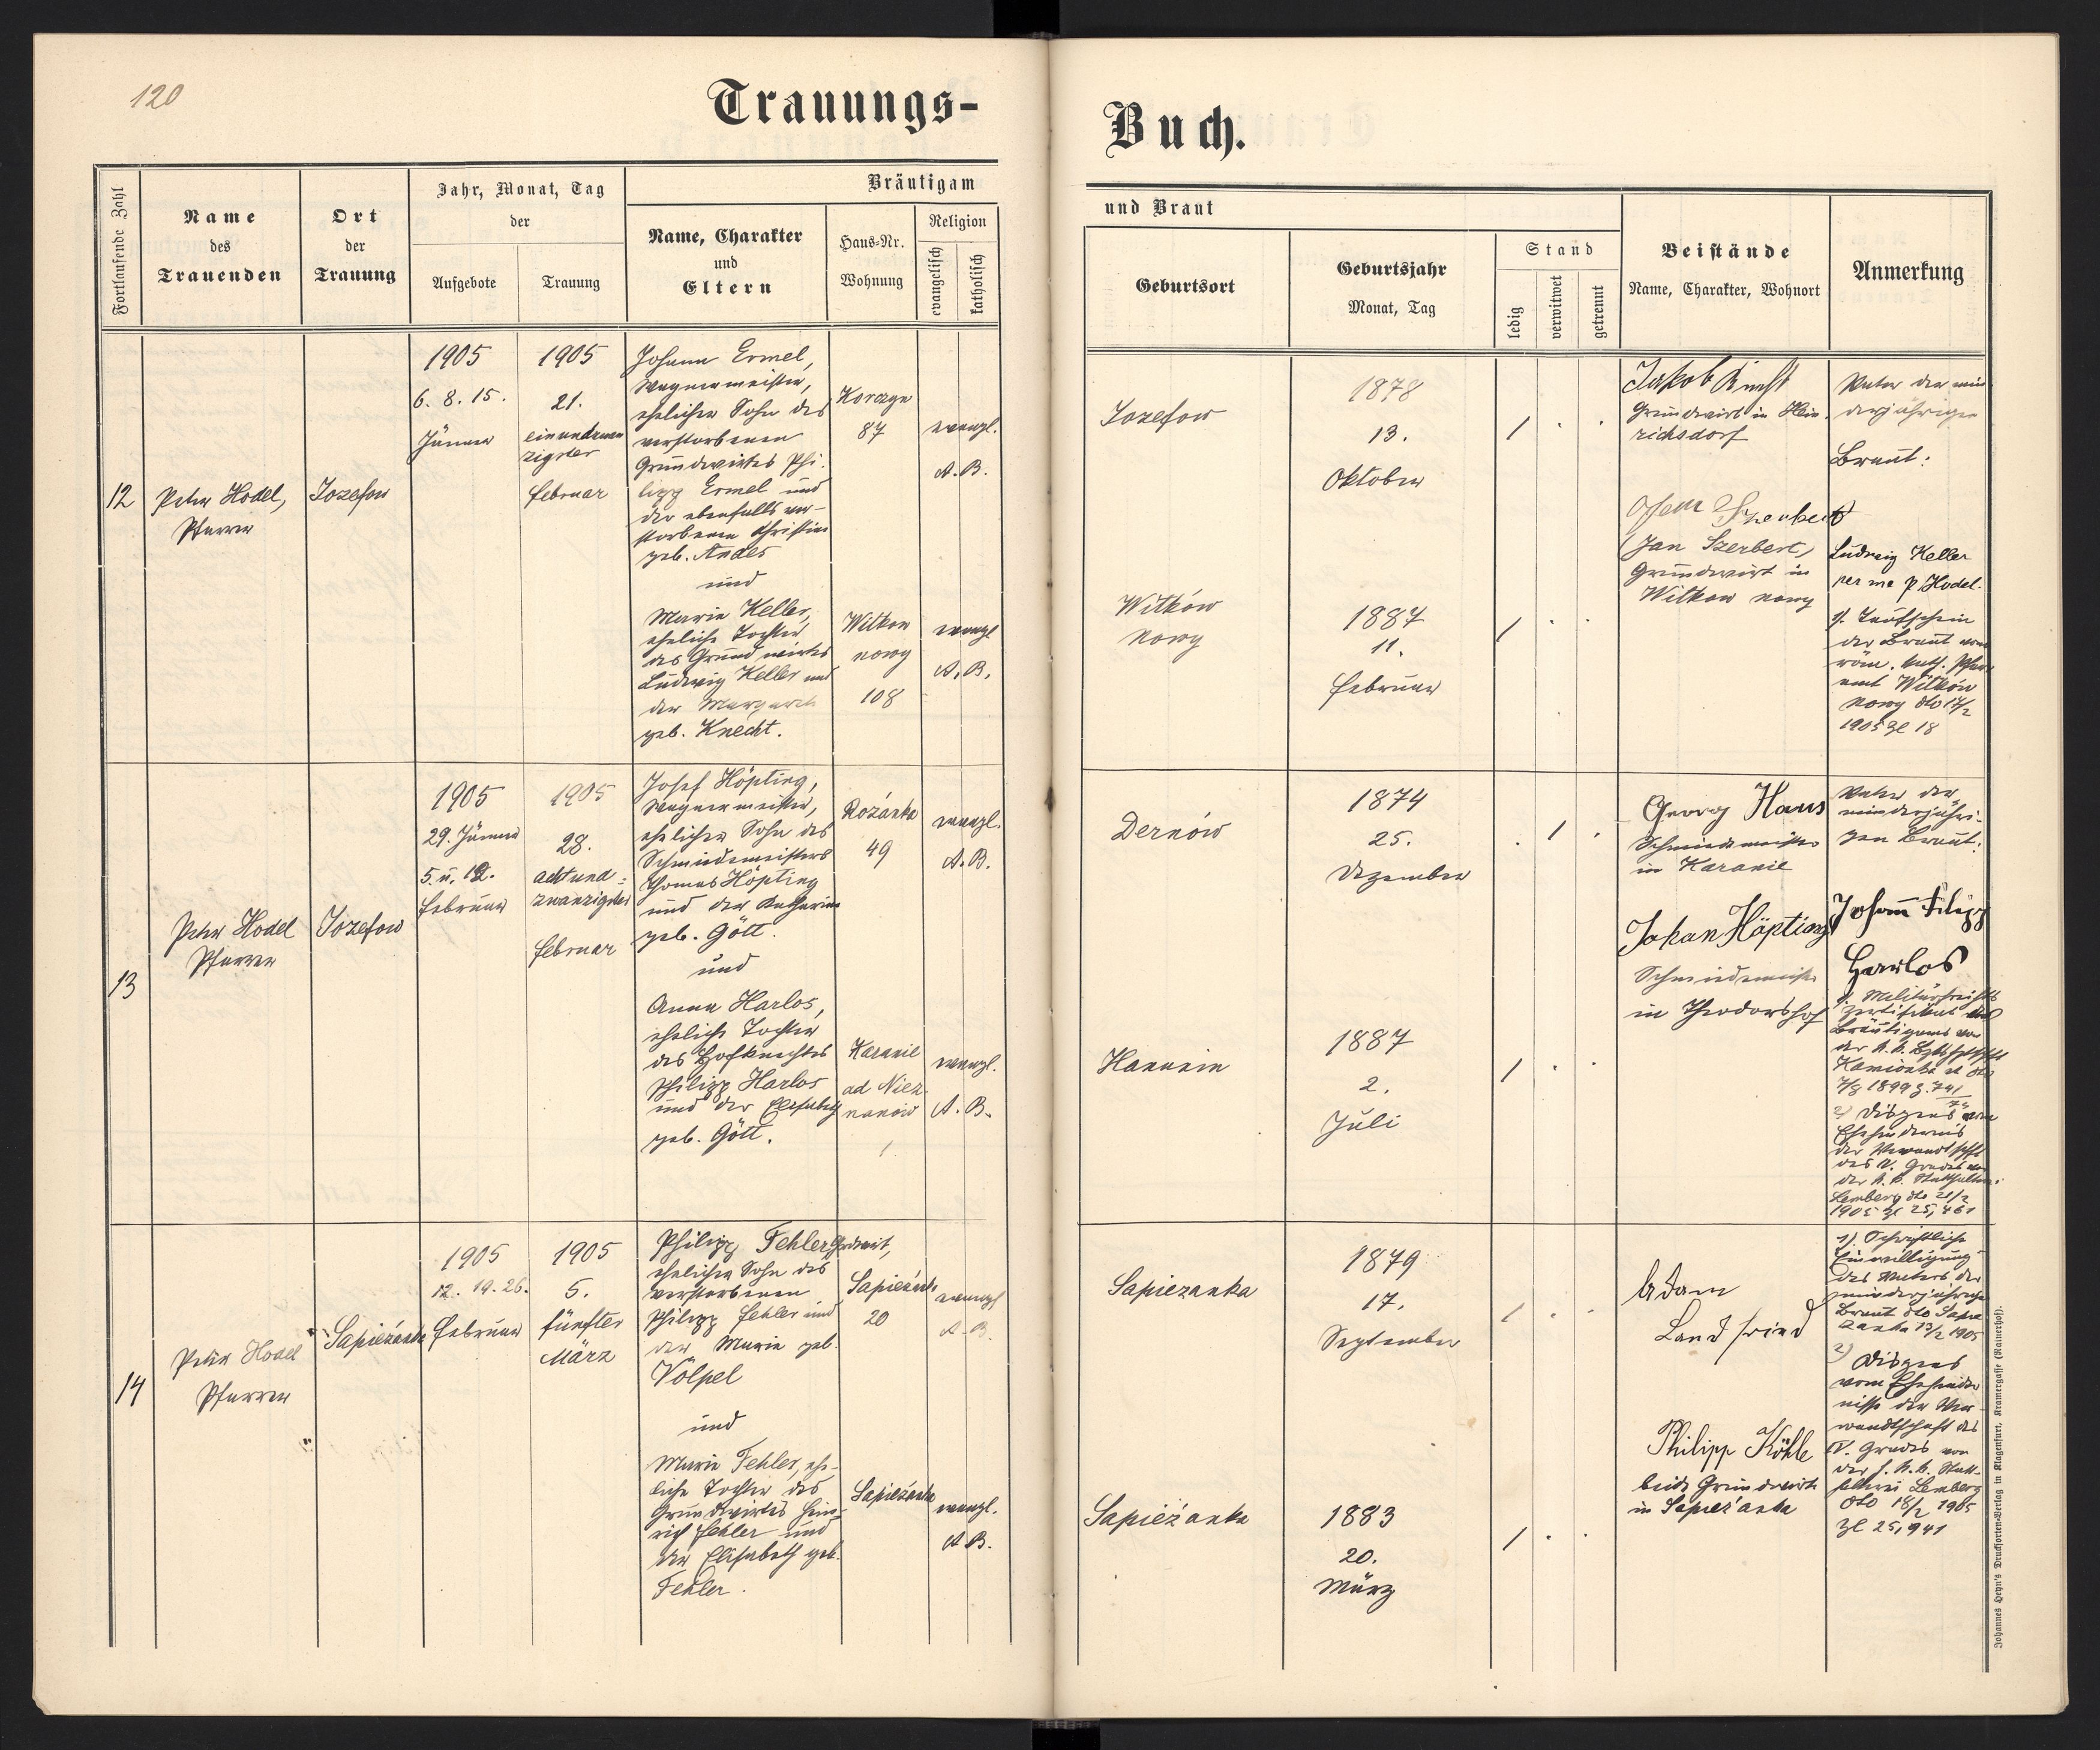 120
Trauungs-
Buch.
Fortlaufende Zahl
Name
des
Trauenden
Ort
der
Trauung
Jahr, Monat, Tag
der
Aufgebote
Trauung
Bräutigam
Name, Charakter
und
Eltern
Haus-Nr.
Wohnung
Religion
evangelisch
katholisch
und Braut
Geburtsort
Geburtsjahr
Monat, Tag
Stand
ledig
verwitwet
getrennt
Beistände
Name, Charakter, Wohnort
Anmerkung
12
Peter Hodel,
Pfarrer
Jozefow
1905
6. 8. 15.
Jänner
1905
21.
einundzwan
zigster
Februar
Johann Ermel,
Wagnermeister,
ehelicher Sohn des
verstorbenen
Grundwirtes Phi-
lipp Ermel und
der ebenfalls ver-
storbenen Christine
geb. Andes
und
Marie Keller,
eheliche Tochter
des Grundwirtes
Ludwig Keller und
der Margareth
geb. Knecht.
Korczyn
87
evangl.
A. B.
Witkow
nowy
108
evangl
A. B.
Jozefow
1878
13.
Oktober
/ . .
Witków
nowy
1887
11.
Februar
/ . .
Jakob
Grundwirt in Hein-
richsdorf
(Jan Szerbert)
Grundwirt in
Witkow nowy
Vater der min-
derjährigen
Braut:
Ludwig Keller
per me P. Hodel.
1). Taufschein
der Braut vom
röm. kath. Pfarr-
amt Witków
nowy dto 17/2
1905 Zl 18
13
Peter Hodel
Pfarrer
Jozefow
1905
29. Jänner
5. u. 12.
Februar
1905
28.
achtund-
zwanzigster
Februar
Josef Höpting,
Wagnermeister,
ehelicher Sohn des
Schmiedemeisters
Thomas Höpting
und der Katharine
geb. Gött.
und
Anna Harlos,
eheliche Tochter
des Hofknechtes
Philipp Harlos
und der Elisabeth
geb. Gött.
Rozanka
49
evangl.
A. B.
Karanie
ad Niez-
nanow
evangl.
A. B.
Dernów
1874
25.
Dezember
. / .
Hanunin
1887
2.
Juli
/ . .
Georg Haus
Schmiedmeister
in Karanie
Johan Höpting
Schmiedemeister
in Theodorshof
Vater der
minderjähri-
gen Braut:
Johann Filipp
Harlos
1). Militärfreiheits
Zertifikat des
Bräutigams von
der k. k. Bzkshptschft
Kamionka
1899 Z. 741
2) Dispens vom
Ehehindernis
der Verwandtschft
des IV. Grades von
der k. k. Statthalterei
Lemberg dto 21/2
1905 Zl 25,461
14
Peter Hodel
Pfarrer
Sapieżanka
1905
12. 19. 26.
Februar
1905
5.
fünfter
März
Philipp Fehler, Grdwirt,
ehelicher Sohn des
verstorbenen
Philipp Fehler und
der Marie geb.
Völpel
und
Marie Fehler, ehe-
liche Tochter des
Grundwirtes Hein-
rich Fehler und
der Elisabeth geb.
Fehler.
Sapieżanka
20
evangl
A. B.
Sapieżanka
evangl.
A B.
Sapiezanka
1879
17.
September
/ . .
Sapieżanka
1883
20.
März
/ . .
Adam
Landfried
Philipp Köhle
beide Grundwirte
in Sapieżanka
1). Schriftliche
Einwilligung
des Vaters der
minderjährigen
Braut dto Sapie
zanka 13/2 1905
2) Dispens
vom Ehehinder
nisse der Ver-
wandtschaft des
IV. Grades von
der k. k. Statt-
halterei Lemberg
dto 18/2 1905
Zl 25,941
Johannes Heyn's Drucksorten-Verlag in Klagenfurt, Kramergasse (Rainerhof).